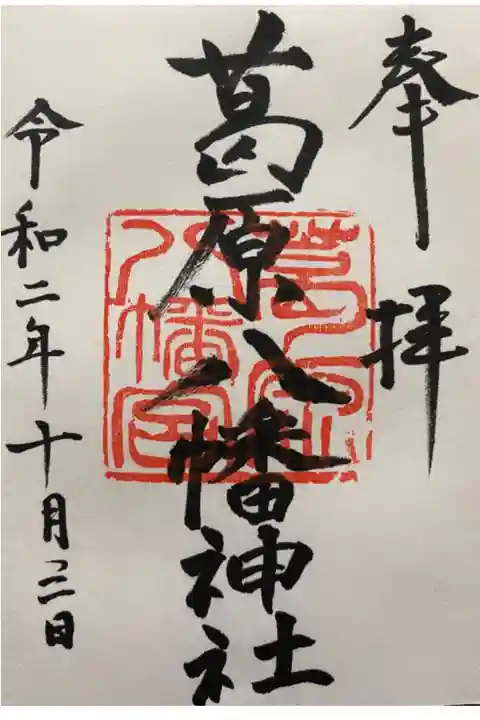 奉拝
葛原八幡神社
葛原
八幡宮
令和二年十月三日